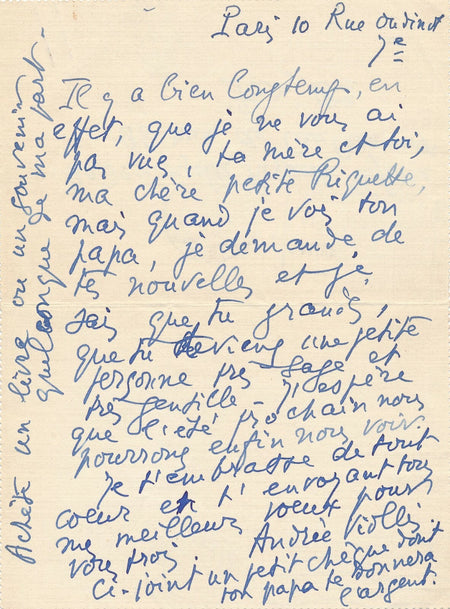 Paris 10 Rue Oudinot
7e
Il y a bien longtemps, en
effet, que je ne vous ai
pas vues, ta mère et toi,
ma chère petite Riquette,
mais quand je vois ton
papa, je demande de
tes nouvelles et je
sais que tu grandis,
que tu deviens une petite
personne très sage et
très gentille - J'espère
que l'été prochain nous
pourrons enfin nous voir.
Je t'embrasse de tout
coeur et t'envoyant tous
mes meilleurs voeux pour
vous trois. Andrée Viollis
Ci-joint un petit chèque dont
ton papa te donnera
l'argent.
Achète un livre ou un souvenir
quelconque de ma part -